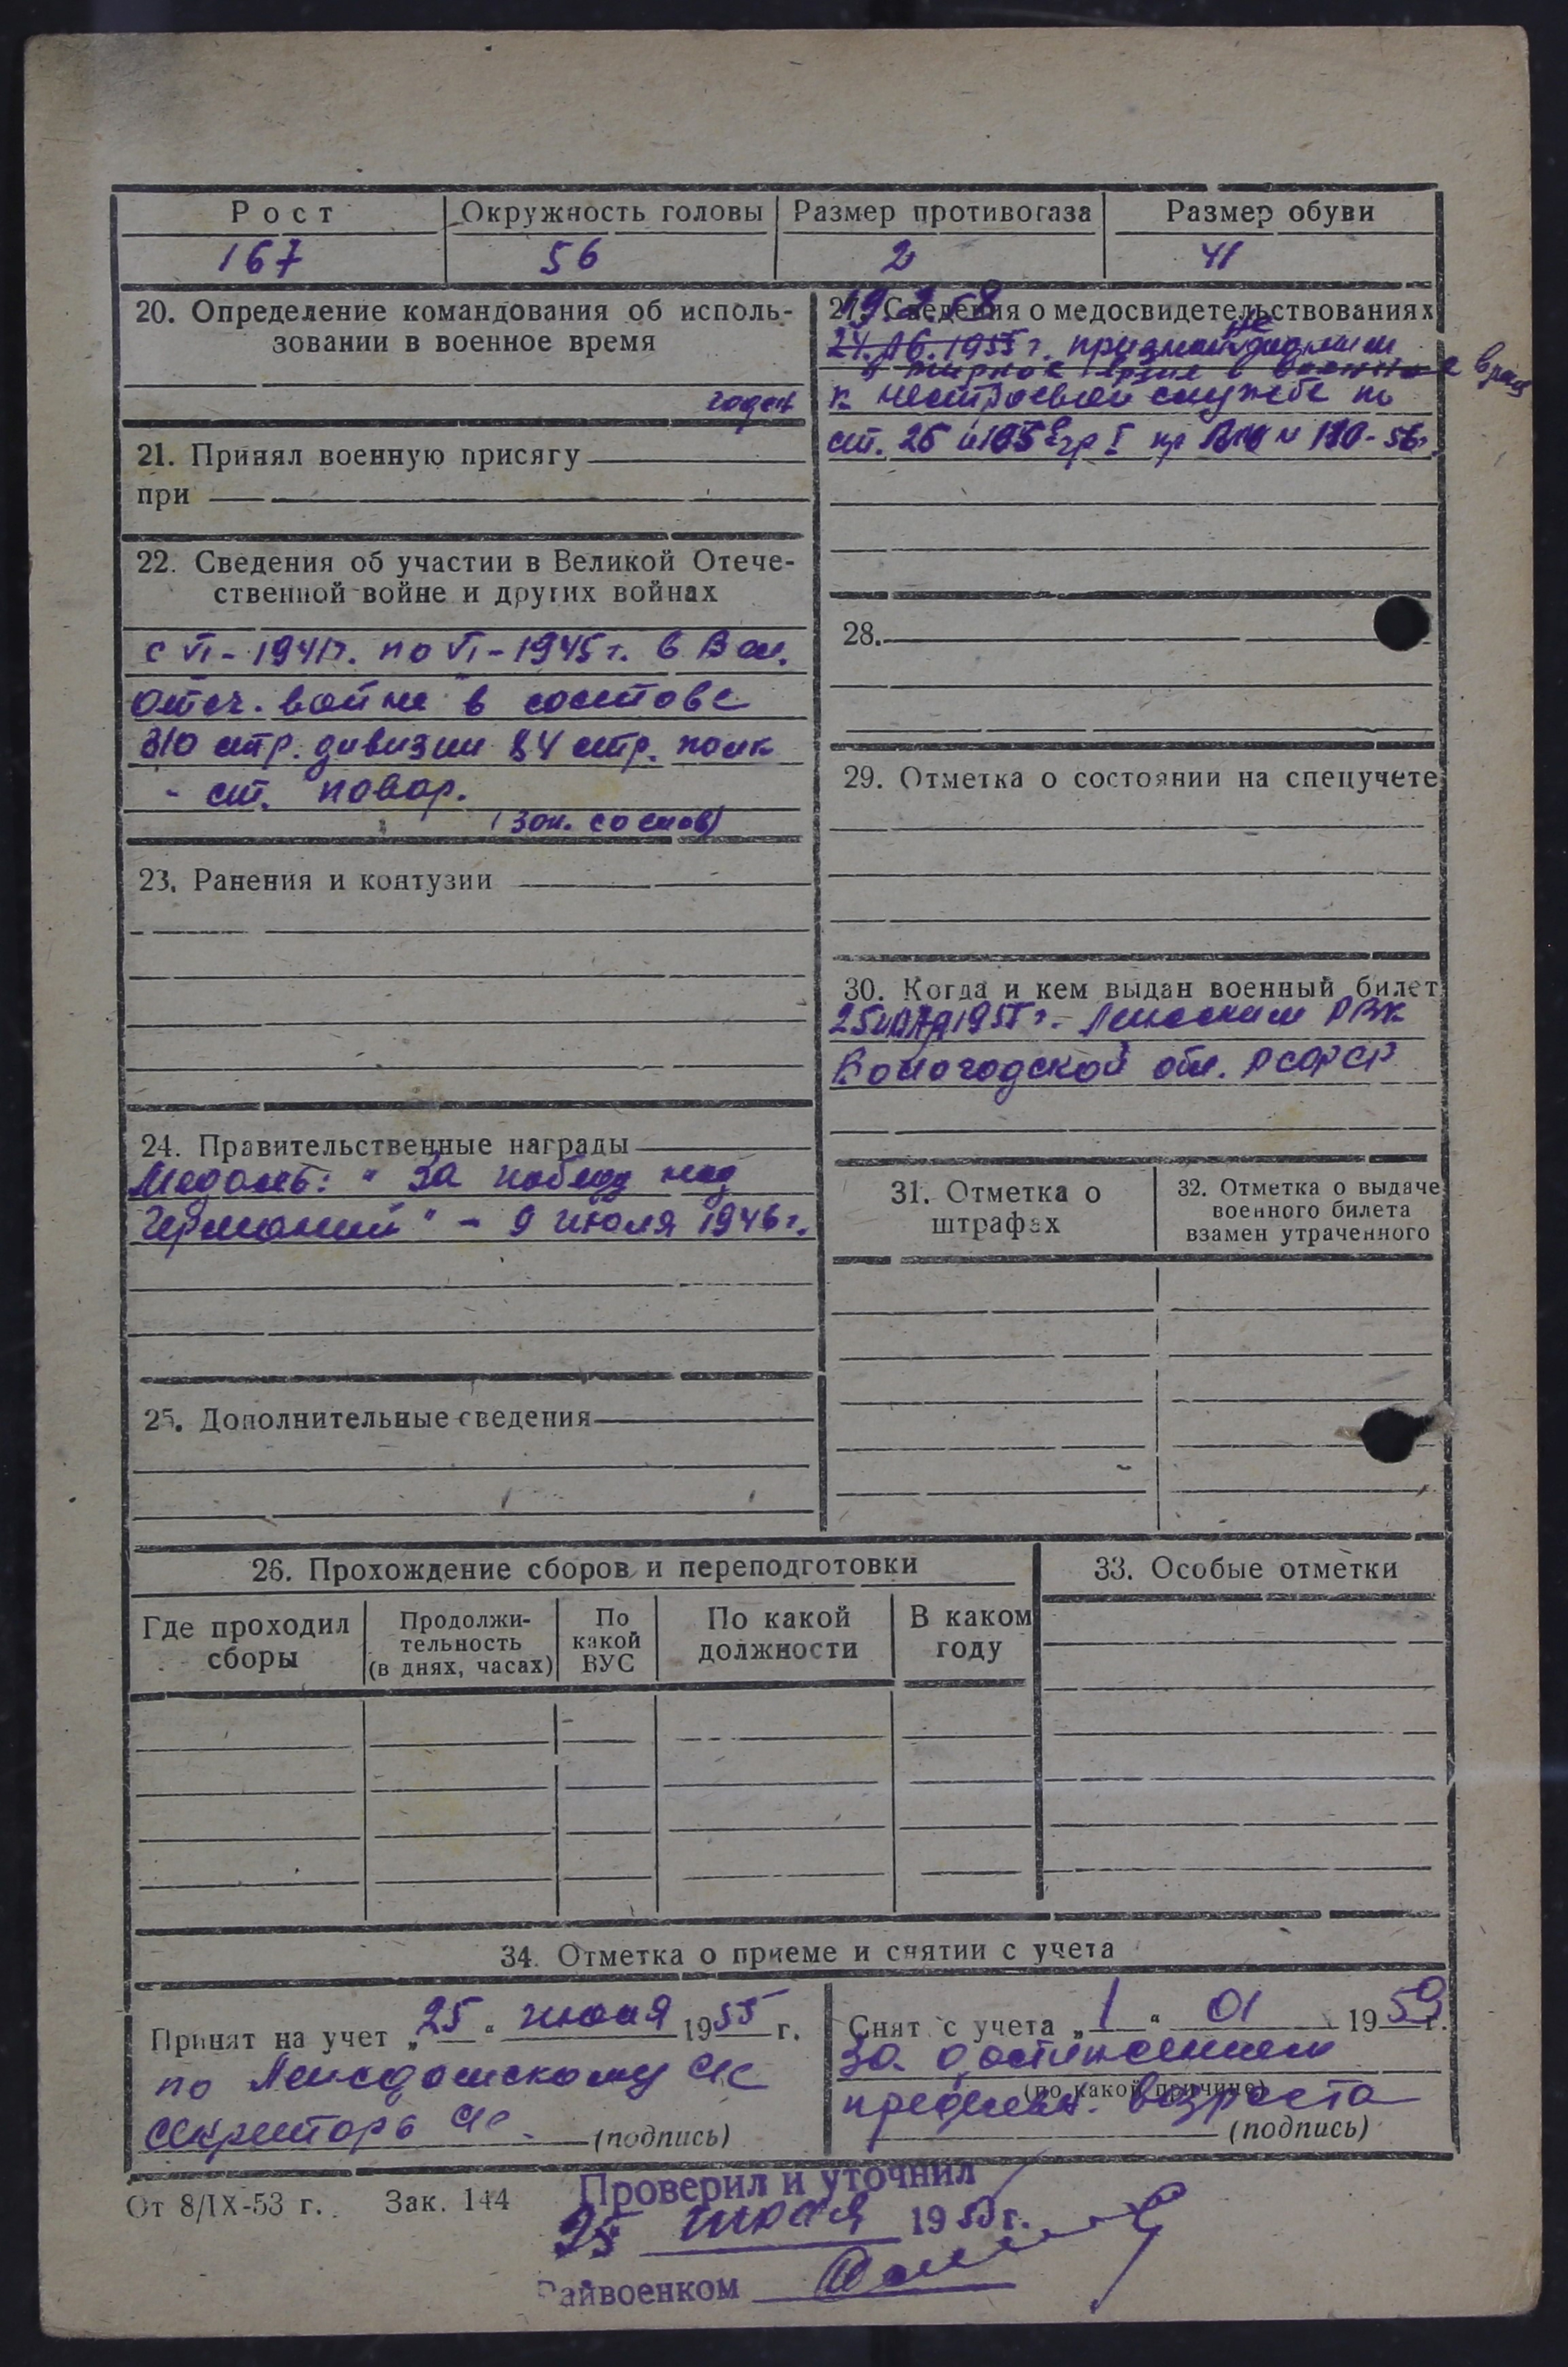 Рост Окружность головы Размер противогаза Размер обуви
167 56 2 41
20. Определение командования об исполь-
зовании в военное время
годен
21. Принял военную присягу
при
22. Сведения об участии в Великой Отече-
ственной войне и других войнах
с VI - 1941г. по VI - 1945 г. в Вел.
Отеч. войне в составе
310 стр. дивизии 84 стр. полк
- ст. повар.
23. Ранения и контузии
24. Правительственные награды
Медаль: "За победу над
Германией" - 9 июля 1946 г.
25. Дополнительные сведения
27. Сведения о медосвидетельствованиях
19.2.58
24.06.1955 г. признан не годным
к нестроевой службе по
ст. 26 и 105 гр I пр № 130-56г.
28.
29. Отметка о состоянии на спецучете
30. Когда и кем выдан военный билет
25 1955 г. РВК
Вологодской обл. РСФСР
31. Отметка о
штрафах
32. Отметка о выдаче
военного билета
взамен утраченного
26. Прохождение сборов и переподготовки
Где проходил
сборы
Продолжи-
тельность
(в днях, часах)
По
какой
ВУС
По какой
должности
В каком
году
33. Особые отметки
34. Отметка о приеме и снятии с учета
Принят на учет „25“ июля 1955 г.
по с/с
секретарь с/с. (подпись)
Снят с учета „1“ 01 1959 г.
за достижением
(по какой причине)
предельн. возраста
(подпись)
От 8/IX-53 г. Зак. 144
Проверил и уточнил
25 июля 1955 г.
Райвоенком